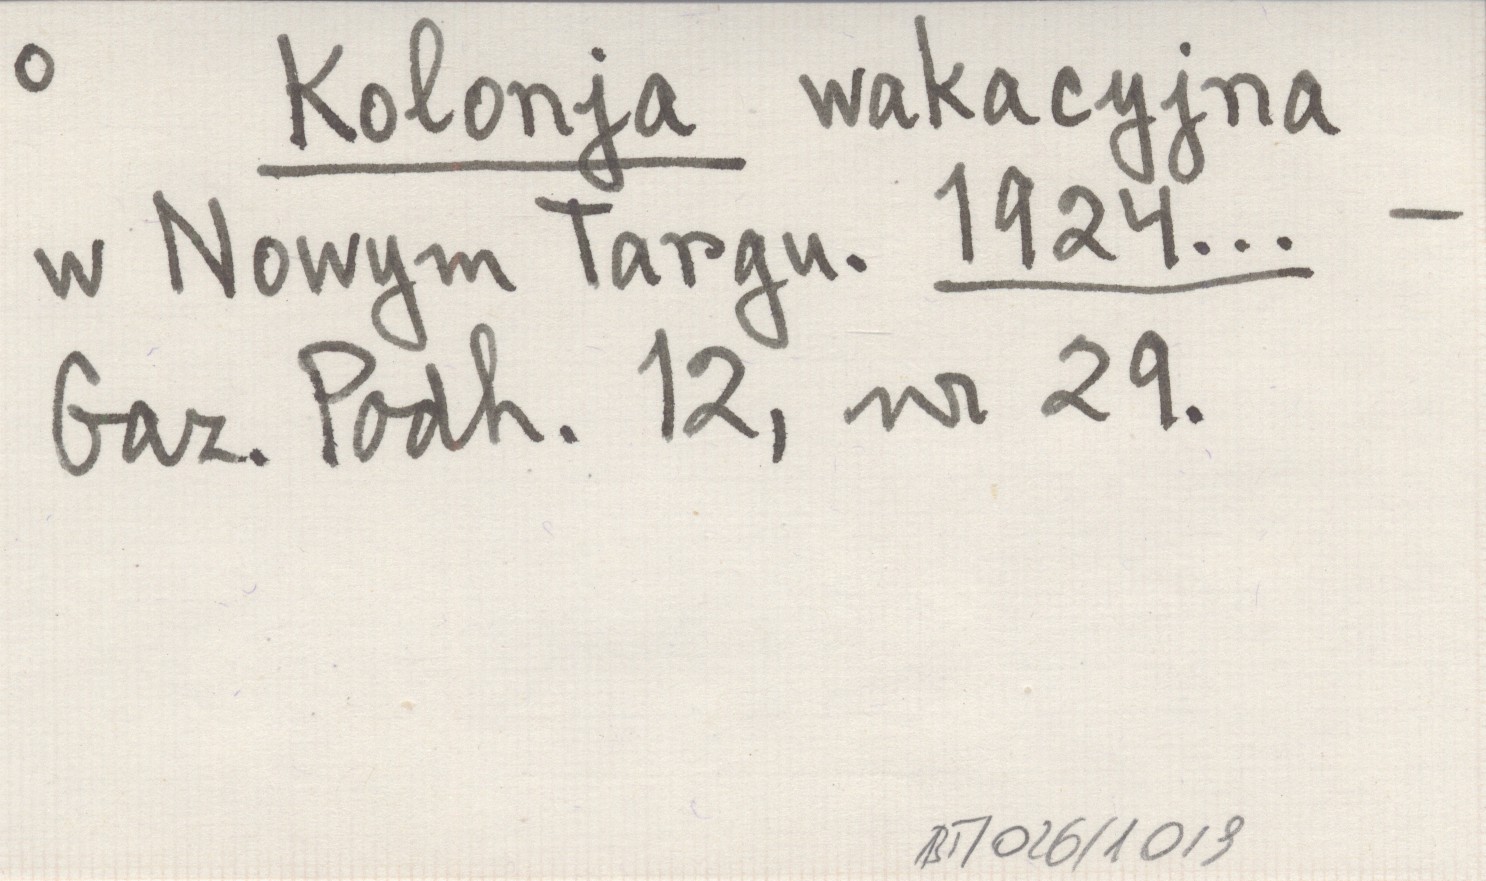 o Kolonja wakacyjna
w Nowym Targu. 1924... –
Gaz. Podh. 12, nr 29.
BT/026/1019